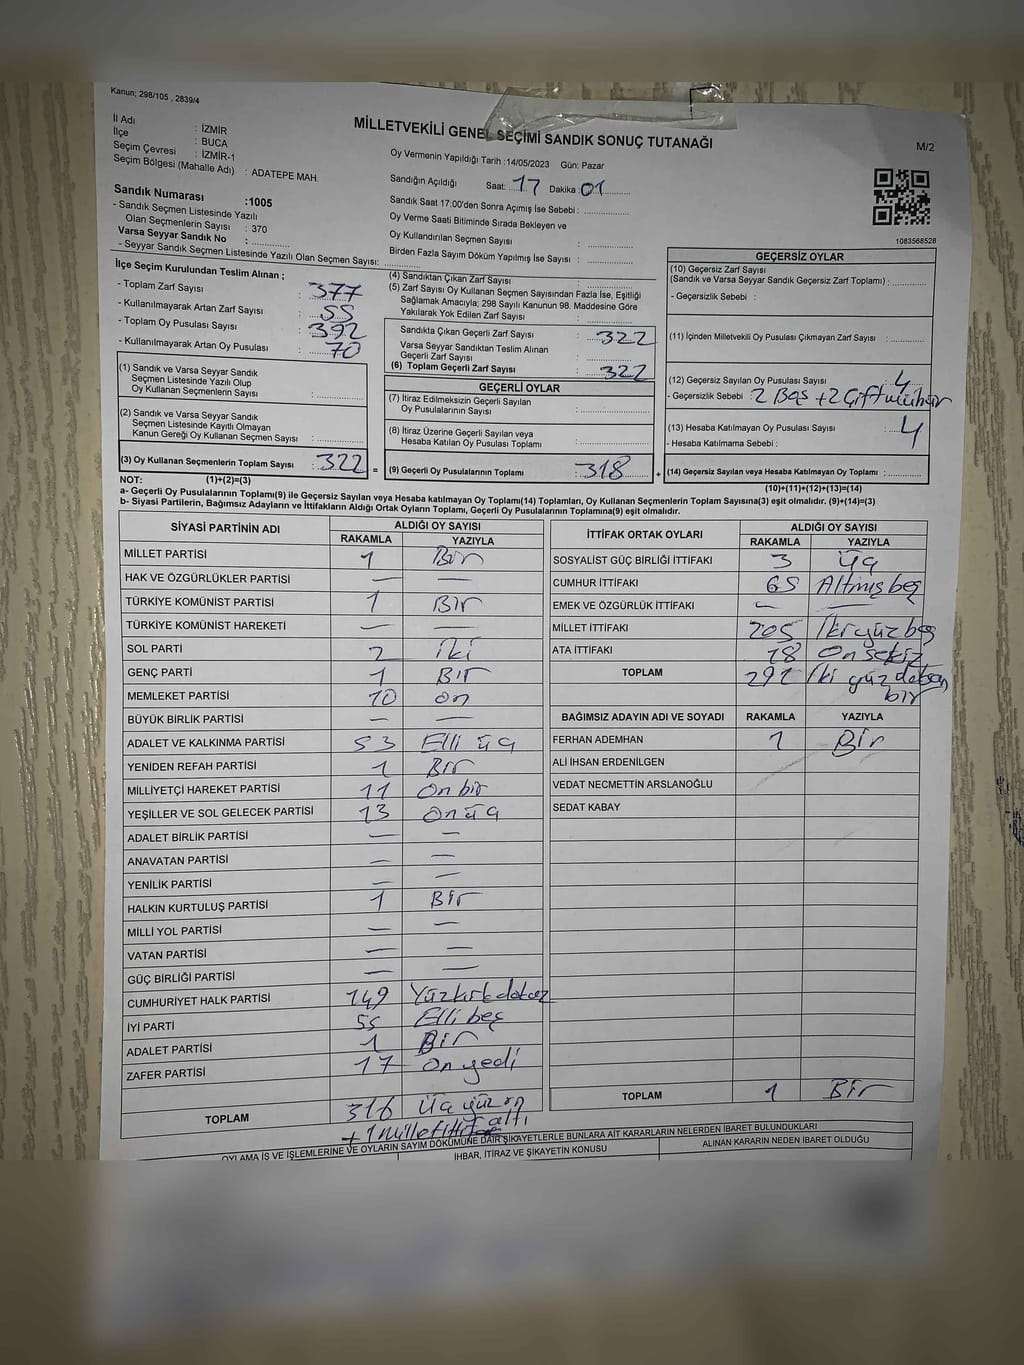 Kanun; 298/105 , 2839/4
MİLLETVEKİLİ GENEL SEÇİMİ SANDIK SONUÇ TUTANAĞI
M/2
İl Adı : İZMİR
İlçe : BUCA
Seçim Çevresi : İZMİR-1
Seçim Bölgesi (Mahalle Adı) : ADATEPE MAH.
Sandık Numarası :1005
- Sandık Seçmen Listesinde Yazılı
Olan Seçmenlerin Sayısı : 370
Varsa Seyyar Sandık No :
- Seyyar Sandık Seçmen Listesinde Yazılı Olan Seçmen Sayısı:
Oy Vermenin Yapıldığı Tarih :14/05/2023 Gün: Pazar
Sandığın Açıldığı Saat: 17 Dakika 01
Sandık Saat 17:00'den Sonra Açımış İse Sebebi :
Oy Verme Saati Bitiminde Sırada Bekleyen ve
Oy Kullandırılan Seçmen Sayısı :
Birden Fazla Sayım Döküm Yapılmış İse Sayısı :
1083568528
İlçe Seçim Kurulundan Teslim Alınan ;
- Toplam Zarf Sayısı : 377
- Kullanılmayarak Artan Zarf Sayısı : 55
- Toplam Oy Pusulası Sayısı : 392
- Kullanılmayarak Artan Oy Pusulası : 70
(1) Sandık ve Varsa Seyyar Sandık
Seçmen Listesinde Yazılı Olup
Oy Kullanan Seçmenlerin Sayısı :
(2) Sandık ve Varsa Seyyar Sandık
Seçmen Listesinde Kayıtlı Olmayan
Kanun Gereği Oy Kullanan Seçmen Sayısı :
(3) Oy Kullanan Seçmenlerin Toplam Sayısı : 322 =
(1)+(2)=(3)
(4) Sandıktan Çıkan Zarf Sayısı :
(5) Zarf Sayısı Oy Kullanan Seçmen Sayısından Fazla İse, Eşitliği
Sağlamak Amacıyla; 298 Sayılı Kanunun 98. Maddesine Göre
Yakılarak Yok Edilen Zarf Sayısı :
Sandıkta Çıkan Geçerli Zarf Sayısı : 322
Varsa Seyyar Sandıktan Teslim Alınan
Geçerli Zarf Sayısı :
(6) Toplam Geçerli Zarf Sayısı : 322
GEÇERLİ OYLAR
(7) İtiraz Edilmeksizin Geçerli Sayılan
Oy Pusulalarının Sayısı :
(8) İtiraz Üzerine Geçerli Sayılan veya
Hesaba Katılan Oy Pusulası Toplamı :
(9) Geçerli Oy Pusulalarının Toplamı : 318 +
GEÇERSİZ OYLAR
(10) Geçersiz Zarf Sayısı
(Sandık ve Varsa Seyyar Sandık Geçersiz Zarf Toplamı) :
- Geçersizlik Sebebi :
(11) İçinden Milletvekili Oy Pusulası Çıkmayan Zarf Sayısı :
(12) Geçersiz Sayılan Oy Pusulası Sayısı : 4
- Geçersizlik Sebebi : 2 Boş +2 Çift mühür
(13) Hesaba Katılmayan Oy Pusulası Sayısı : 4
- Hesaba Katılmama Sebebi :
(14) Geçersiz Sayılan veya Hesaba Katılmayan Oy Pusulası Toplamı :
(10)+(11)+(12)+(13)=(14)
NOT:
a- Geçerli Oy Pusulalarının Toplamı(9) ile Geçersiz Sayılan veya Hesaba katılmayan Oy Toplamı(14) Toplamları, Oy Kullanan Seçmenlerin Toplam Sayısına(3) eşit olmalıdır. (9)+(14)=(3)
b- Siyasi Partilerin, Bağımsız Adayların ve İttifakların Aldığı Ortak Oyların Toplamı, Geçerli Oy Pusulalarının Toplamına(9) eşit olmalıdır.
SİYASİ PARTİNİN ADI ALDIĞI OY SAYISI
RAKAMLA YAZIYLA
MİLLET PARTİSİ 1 Bir
HAK VE ÖZGÜRLÜKLER PARTİSİ — —
TÜRKİYE KOMÜNİST PARTİSİ 1 Bir
TÜRKİYE KOMÜNİST HAREKETİ — —
SOL PARTİ 2 iki
GENÇ PARTİ 1 BIr
MEMLEKET PARTİSİ 10 on
BÜYÜK BİRLİK PARTİSİ — —
ADALET VE KALKINMA PARTİSİ 53 Elli üç
YENİDEN REFAH PARTİSİ 1 Bir
MİLLİYETÇİ HAREKET PARTİSİ 11 On bir
YEŞİLLER VE SOL GELECEK PARTİSİ 13 On üç
ADALET BİRLİK PARTİSİ — —
ANAVATAN PARTİSİ — —
YENİLİK PARTİSİ — —
HALKIN KURTULUŞ PARTİSİ 1 Bir
MİLLİ YOL PARTİSİ — —
VATAN PARTİSİ — —
GÜÇ BİRLİĞİ PARTİSİ — —
CUMHURİYET HALK PARTİSİ 149 Yüzkırkdokuz
İYİ PARTİ 55 Elli beş
ADALET PARTİSİ 1 Bir
ZAFER PARTİSİ 17 On yedi
TOPLAM 316 Üç yüz on altı
+ 1 millet ittifakı
İTTİFAK ORTAK OYLARI ALDIĞI OY SAYISI
RAKAMLA YAZIYLA
SOSYALİST GÜÇ BİRLİĞİ İTTİFAKI 3 Üç
CUMHUR İTTİFAKI 65 Altmış beş
EMEK VE ÖZGÜRLÜK İTTİFAKI — —
MİLLET İTTİFAKI 205 İki yüz beş
ATA İTTİFAKI 18 On sekiz
TOPLAM 291 İki yüz doksan bir
BAĞIMSIZ ADAYIN ADI VE SOYADI RAKAMLA YAZIYLA
FERHAN ADEMHAN 1 Bir
ALİ İHSAN ERDENİLGEN
VEDAT NECMETTİN ARSLANOĞLU
SEDAT KABAY
TOPLAM 1 Bir
OYLAMA İŞ VE İŞLEMLERİNE VE OYLARIN SAYIM DÖKÜMÜNE DAİR ŞİKAYETLERLE BUNLARA AİT KARARLARIN NELERDEN İBARET BULUNDUKLARI
İHBAR, İTİRAZ VE ŞİKAYETİN KONUSU
ALINAN KARARIN NEDEN İBARET OLDUĞU